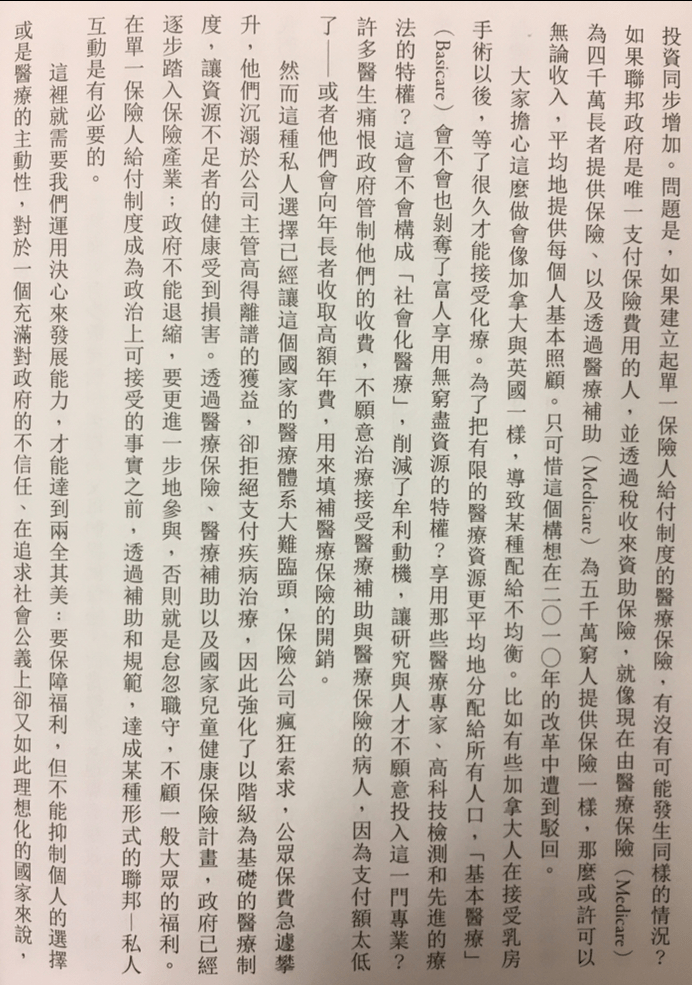 投資同步增加。問題是，如果建立起單一保險人給付制度的醫療保險，有沒有可能發生同樣的情況？
如果聯邦政府是唯一支付保險費用的人，並透過稅收來資助保險，就像現在由醫療保險（Medicare）
為四千萬長者提供保險、以及透過醫療補助（Medicare）為五千萬窮人提供保險一樣，那麼或許可以
無論收入，平均地提供每個人基本照顧。只可惜這個構想在二〇一〇年的改革中遭到駁回。
大家擔心這麼做會像加拿大與英國一樣，導致某種配給不均衡。比如有些加拿大人在接受乳房
手術以後，等了很久才能接受化療。為了把有限的醫療資源更平均地分配給所有人口，「基本醫療」
（Basicare）會不會也剝奪了富人享用無窮盡資源的特權？享用那些醫療專家、高科技檢測和先進的療
法的特權？這會不會構成「社會化醫療」，削減了牟利動機，讓研究與人才不願意投入這一門專業？
許多醫生痛恨政府管制他們的收費，不願意治療接受醫療補助與醫療保險的病人，因為支付額太低
了——或者他們會向年長者收取高額年費，用來填補醫療保險的開銷。
然而這種私人選擇已經讓這個國家的醫療體系大難臨頭，保險公司瘋狂索求，公眾保費急遽攀
升，他們沉溺於公司主管高得離譜的獲益，卻拒絕支付疾病治療，因此強化了以階級為基礎的醫療制
度，讓資源不足者的健康受到損害。透過醫療保險、醫療補助以及國家兒童健康保險計畫，政府已經
逐步踏入保險產業；政府不能退縮，要更進一步地參與，否則就是怠忽職守，不顧一般大眾的福利。
在單一保險人給付制度成為政治上可接受的事實之前，透過補助和規範，達成某種形式的聯邦—私人
互動是有必要的。
這裡就需要我們運用決心來發展能力，才能達到兩全其美：要保障福利，但不能抑制個人的選擇
或是醫療的主動性，對於一個充滿對政府的不信任、在追求社會公義上卻又如此理想化的國家來說，